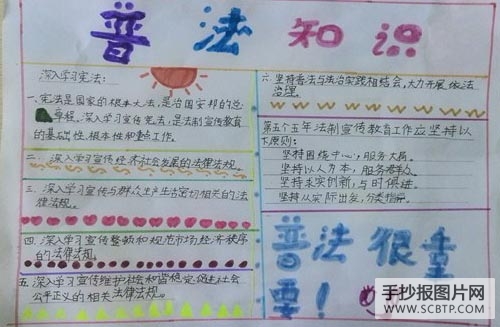 普法知识
深入学习宪法:
一.宪法是国家的根本大法,是治国安邦的总
章程。深入学习宣传宪法,是法制宣传教育
的基础性、根本性和重点工作。
二.深入学习宣传经济社会发展的法律法规。
三.深入学习宣传与群众生产生活密切相关的法
律法规。
四.深入学习宣传整顿和规范市场经济秩序
的法律法规。
五.深入学习宣传维护社会和谐稳定,促进社会
公平正义的相关法律法规。
六.坚持普法与法治实践相结合,大力开展依法
治理。
第五个五年法制宣传教育工作应坚持以
下原则:
坚持围绕中心,服务大局。
坚持以人为本,服务群众。
坚持求实创新,与时俱进。
坚持从实际出发,分类指导。
普法很重
要!
手抄报图片网
WWW.SCBTP.COM